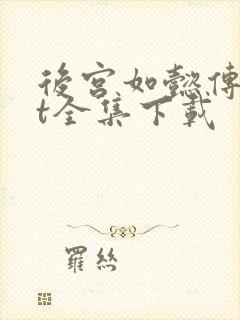 後宮如懿傳
t全集下載
羅絲